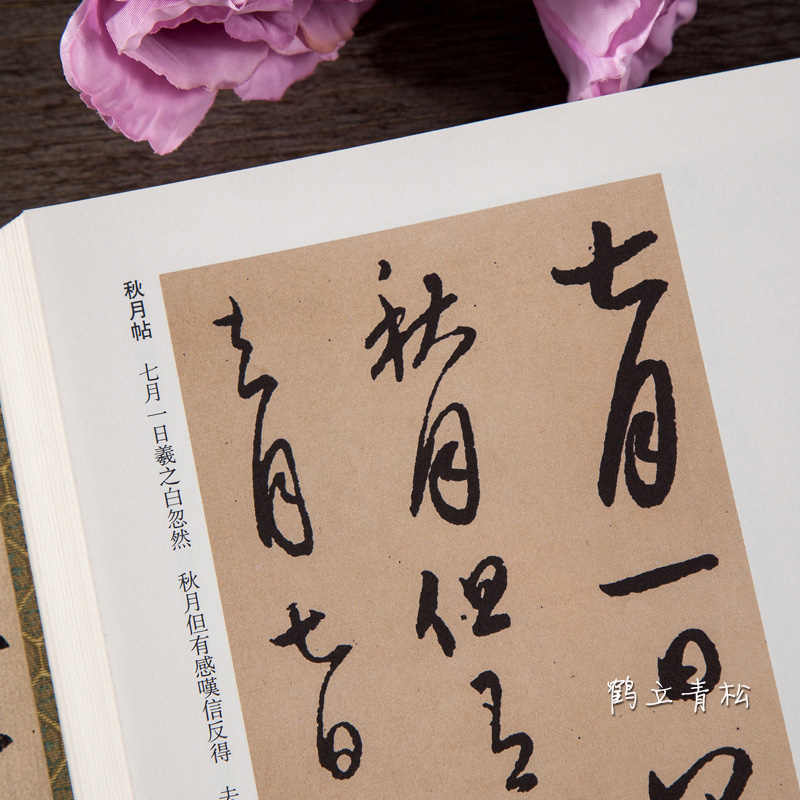 七月一日
秋月但有
去月七日
秋月帖 七月一日羲之白忽然 秋月但有感嘆信反得 去
鹤立青松